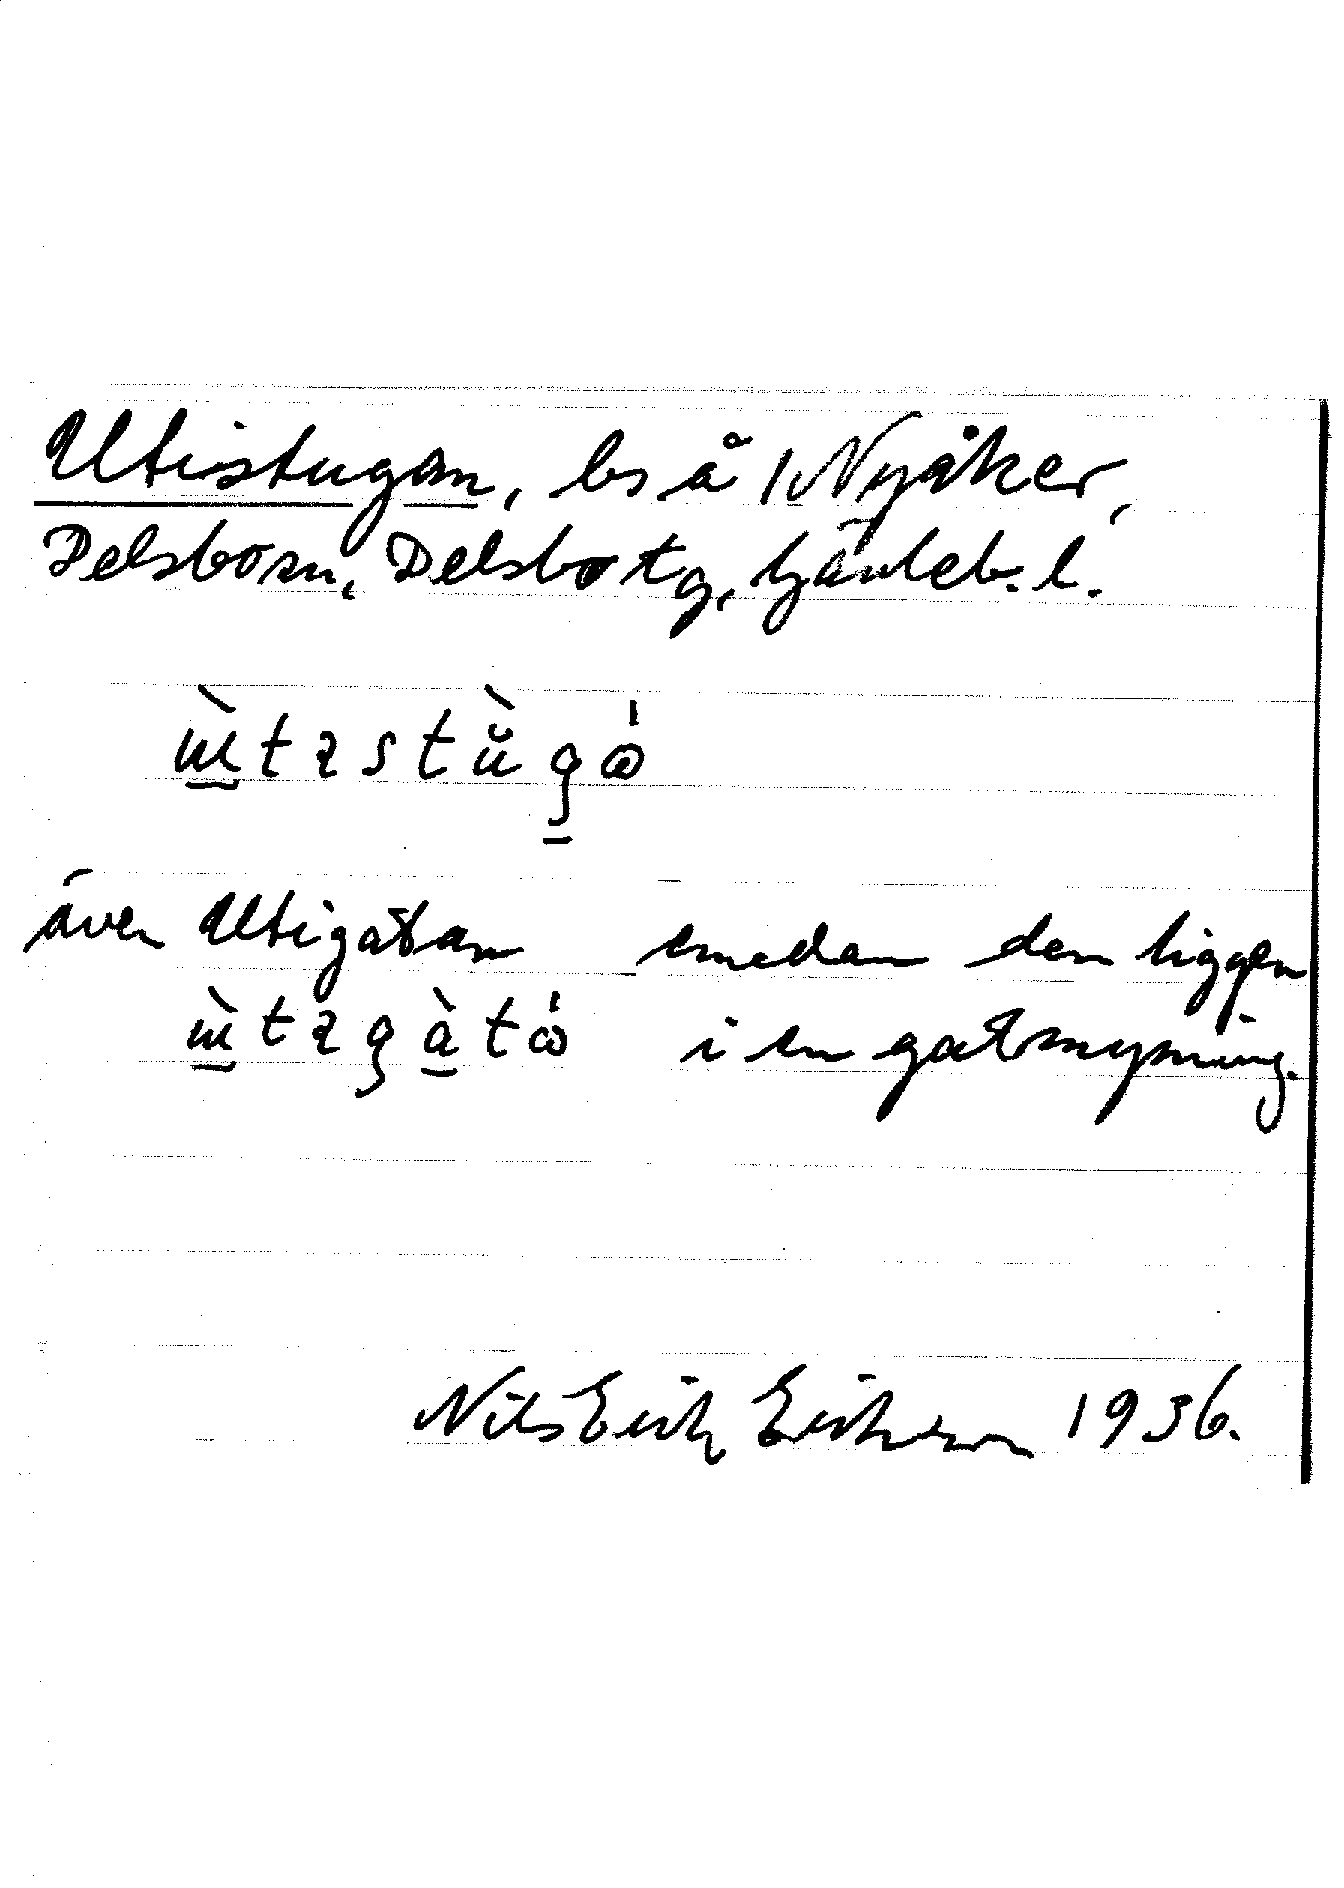 Utistugan, bs å 1 Nyåker,
Delsbo sn, Delsbo tg, Gävleb. l.
ὼtɩstùgὼ
även Utigatan emedan den ligger
ὼtɩgàtὼ i en gatmynning.
Nils Erik Eriksson 1936.